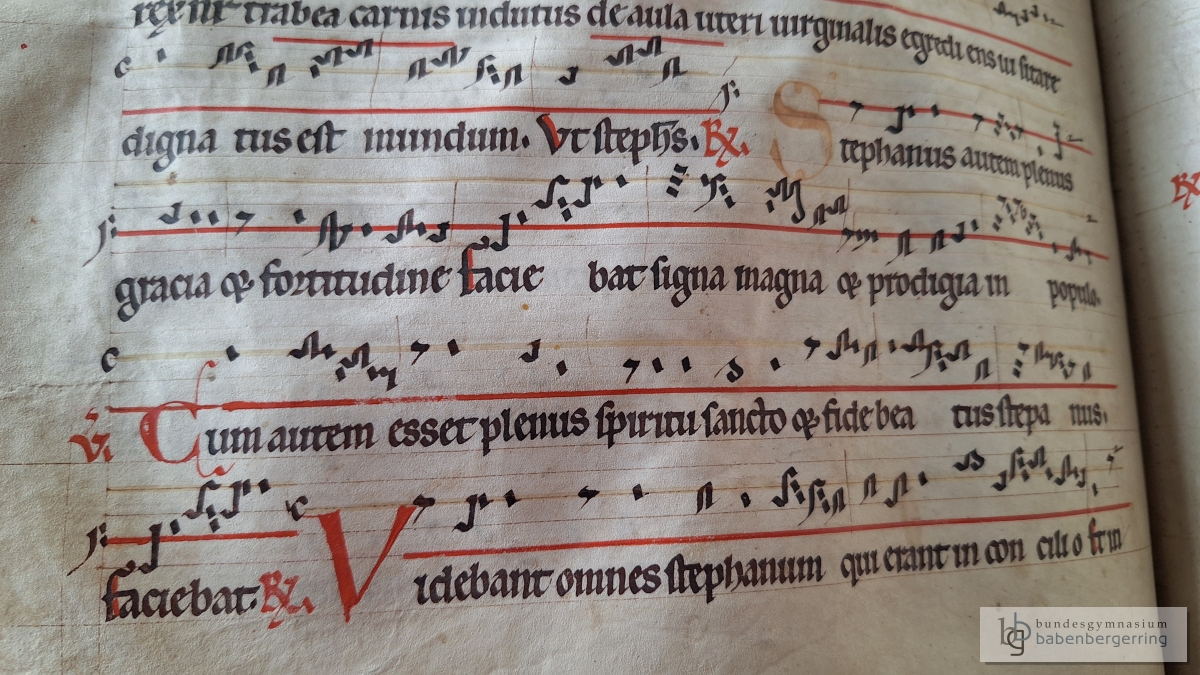 trabea carnis indutus de aula uteri uirginalis egredi ens ui sitare
digna tus est mundum. Vt steph̄s. R℣.
Stephanus autem plenus
gracia & fortitudine facie bat signa magna & prodigia in populo.
V̄. Cum autem esset plenus spiritu sancto & fide bea tus stepa nus.
faciebat. R℣. Videbant omnes stephanum qui erant in con cili o
bundesgymnasium
babenbergerring